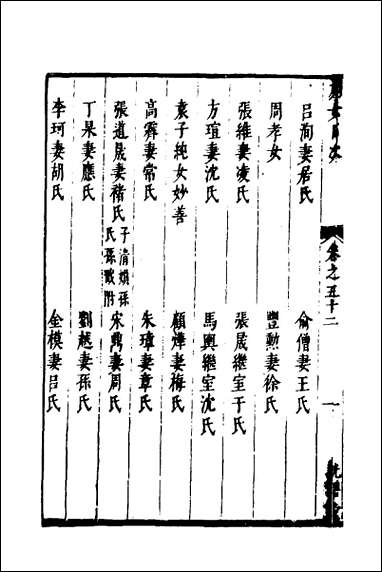 卷之五十二
呂洵妻居氏 俞僧妻王氏
周孝女 豐勲妻徐氏
張維妻凌氏 張晟繼室于氏
方瑄妻沈氏 馬輿繼室沈氏
袁子純女妙善 顧燁妻梅氏
高霽妻常氏 朱瑋妻章氏
張道晟妻褚氏 子清婦孫氏孫 附 宋 妻周氏
丁杲妻應氏 劉越妻孫氏
李珂妻胡氏 金模妻呂氏